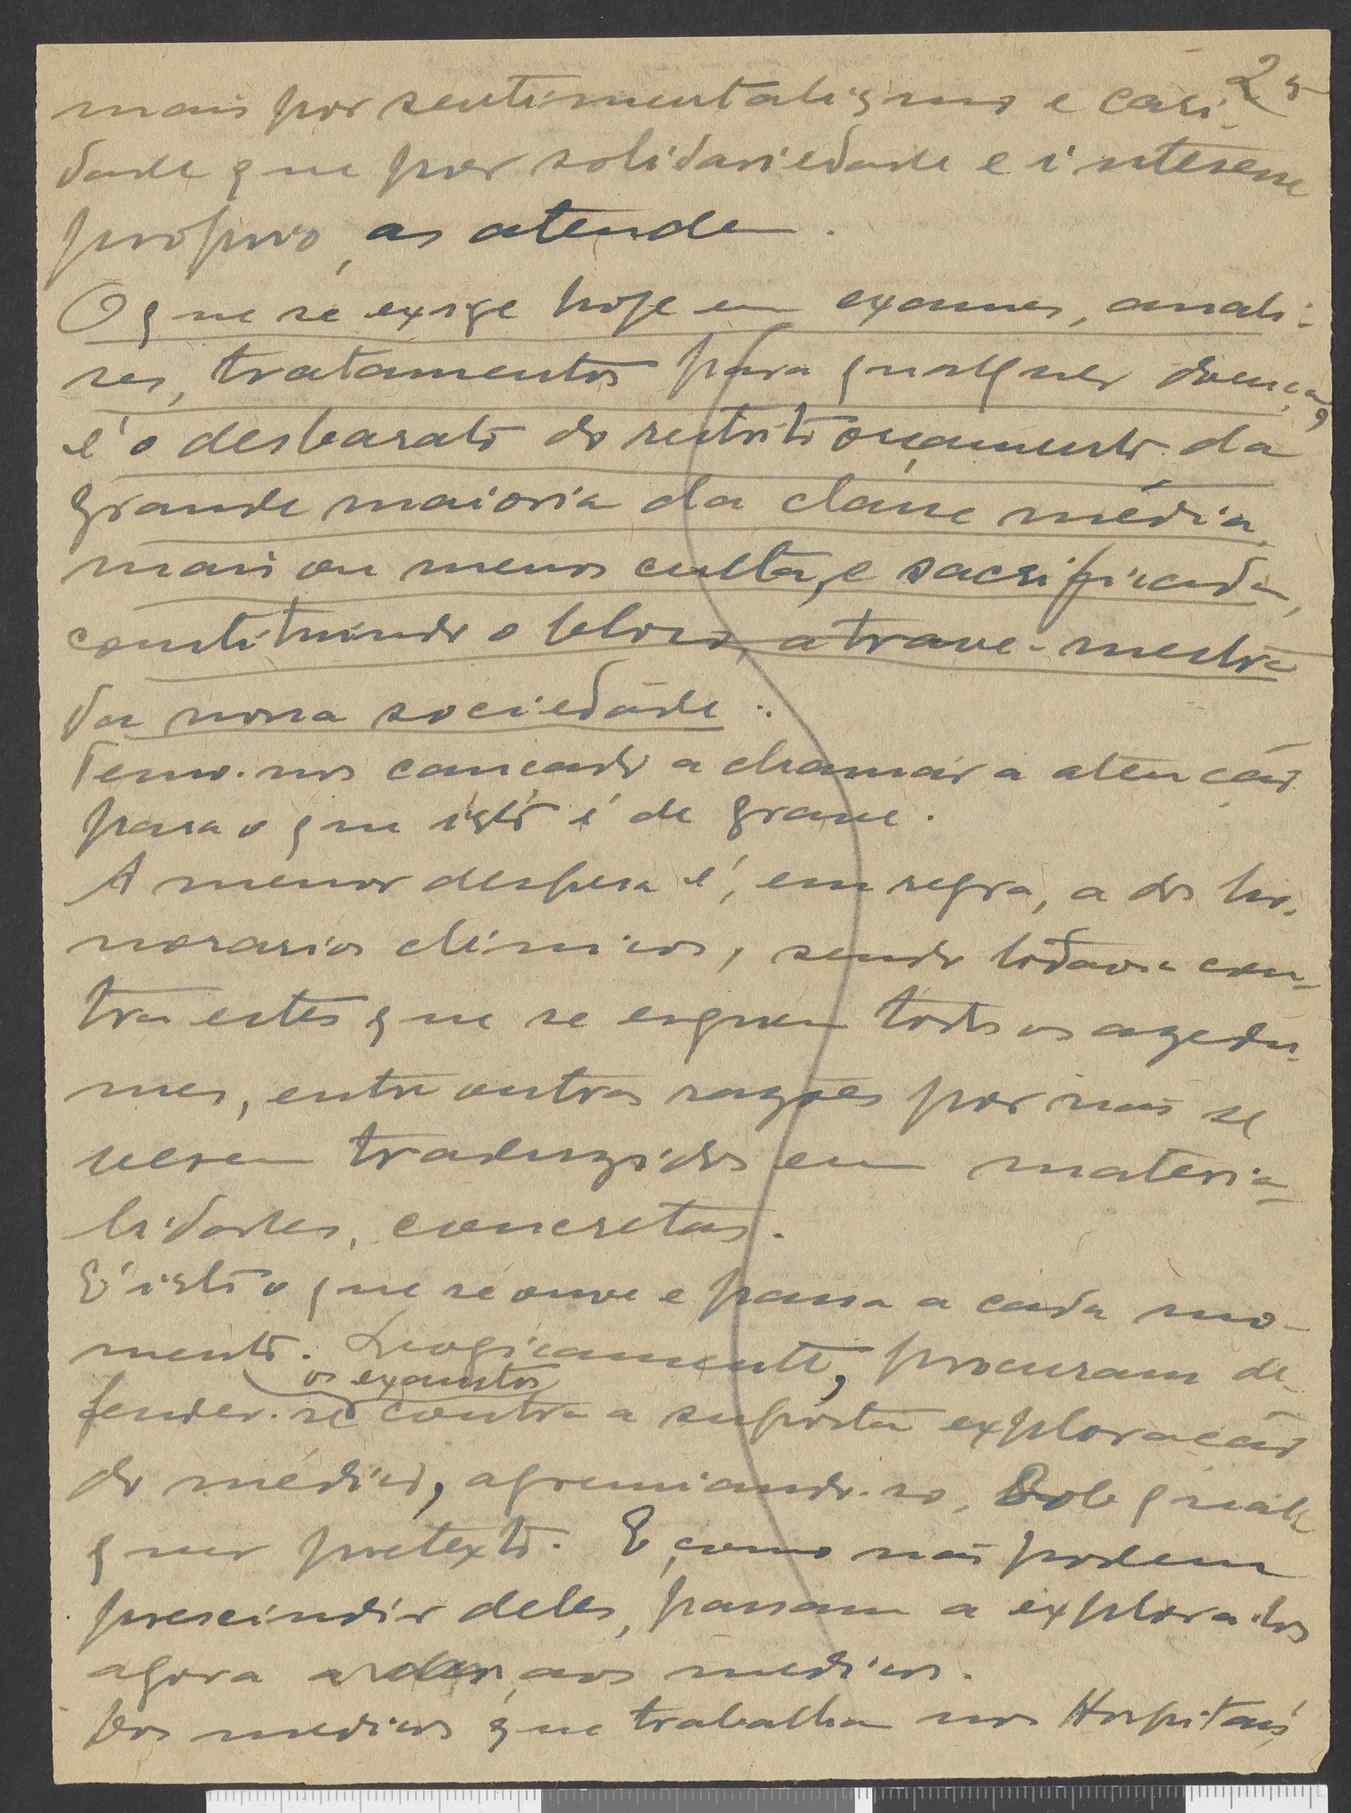 25
mais por sentimentalismo e cari-
dade que por solidariedade e interesse
proprio, as atende.
O que se exige hoje em exames, anali-
ses, tratamentos para qualquer doença,
é o desbarato do restrito orçamento da
grande maioria da classe média
mais ou menos culta, e sacrificada,
constituindo o bloco, a trave-mestra
da nossa sociedade.
Temo-nos cançado a chamar a atenção
para o que isto é de grave.
A menor despesa é, em regra, a dos ho-
norarios clinicos, sendo todavia con-
tra estes que se erguem todos os azedu-
mes, entre outras razões por não se
verem traduzidos em materia-
lidades, concretas.
É isto o que se ouve e passa a cada mo-
mento. Logicamente, procuram de-
os exaustos
fender-se contra a suposta exploração
do médico, agremiando-se, sob qual-
quer pretexto. E como não podem
prescindir deles, passam a explora-los
agora a eles, aos medicos.
Dos medicos que trabalham nos Hospitais